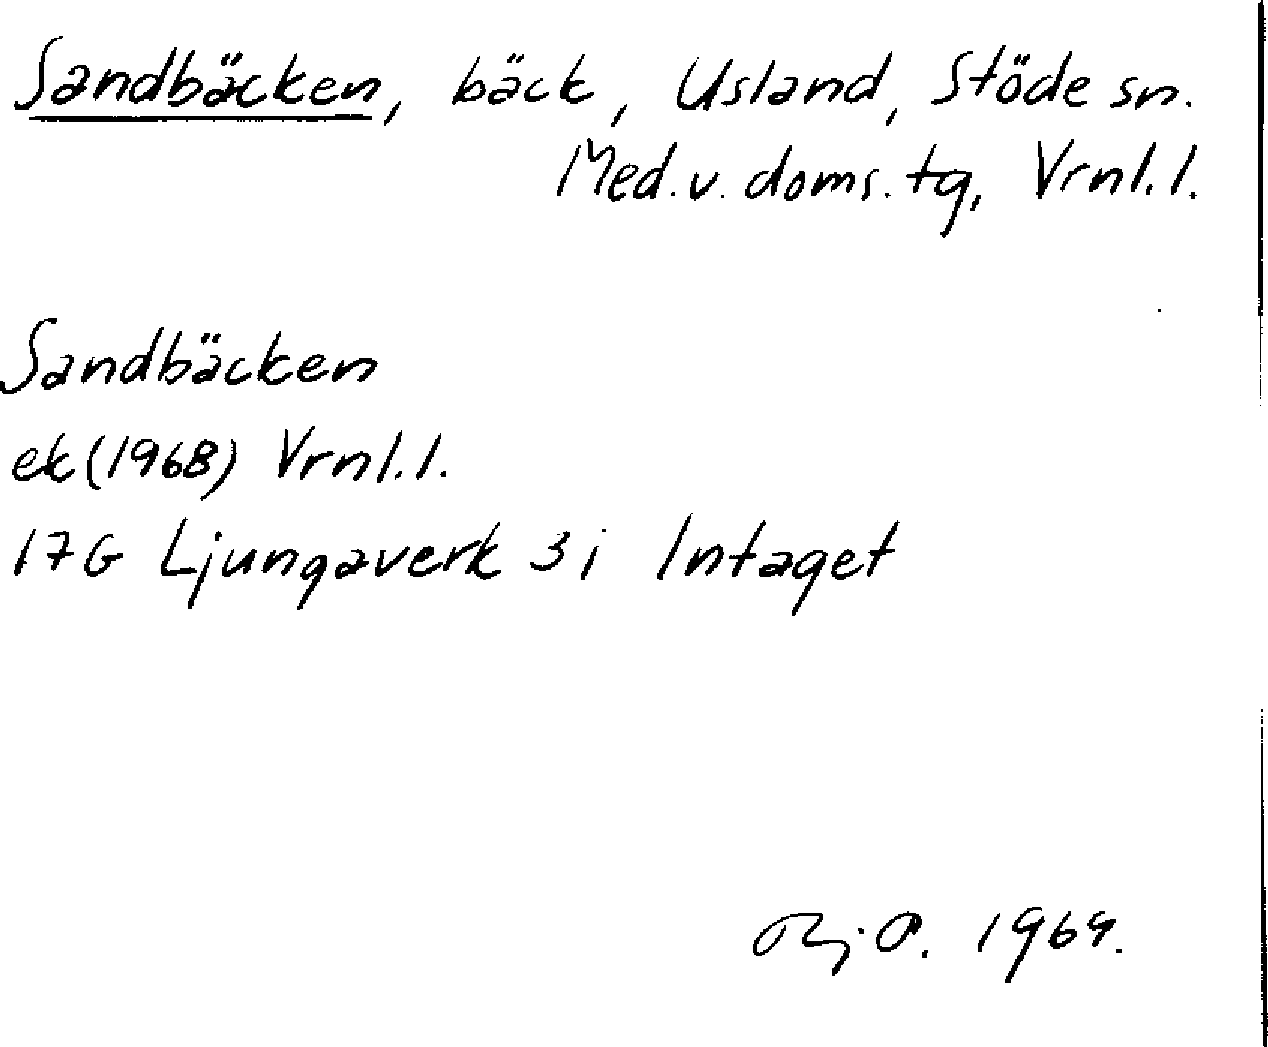 Sandbäcken, bäck, Usland, Stöde sn.
Med. v. doms. tg, Vrnl. l.
Sandbäcken
ek (1968) Vrnl. l.
17G Ljungaverk 3i Intaget
1969.